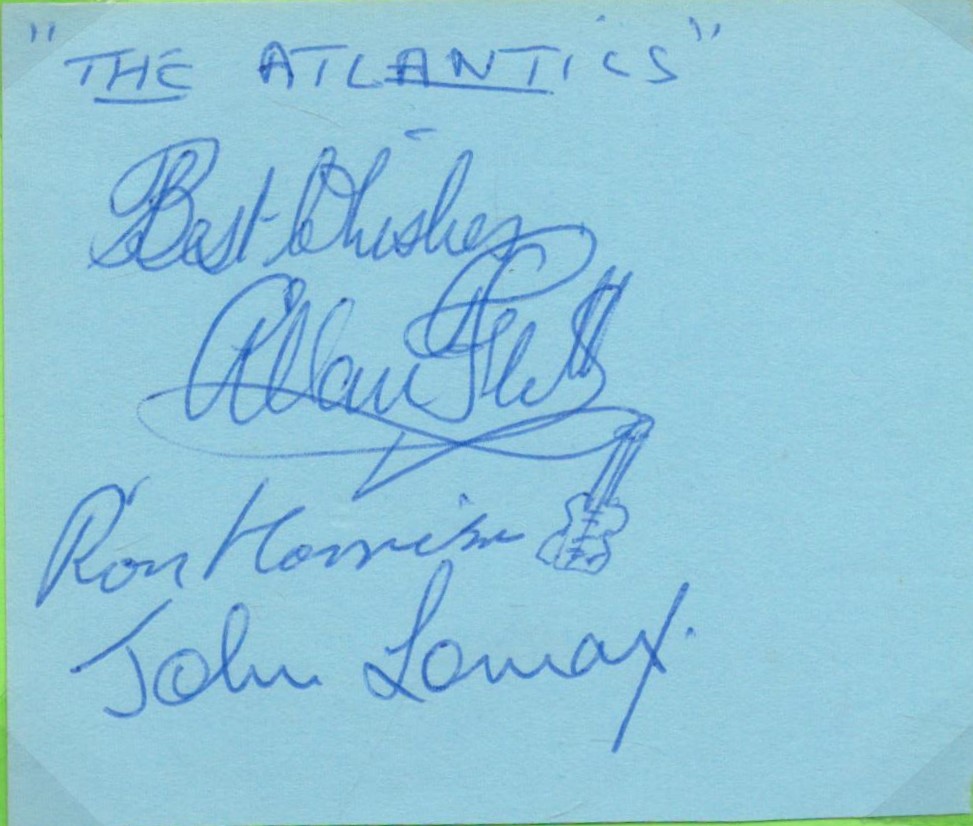 "THE ATLANTICS"
Best Whishes
Allan
Ron Harrison
John Lomax.